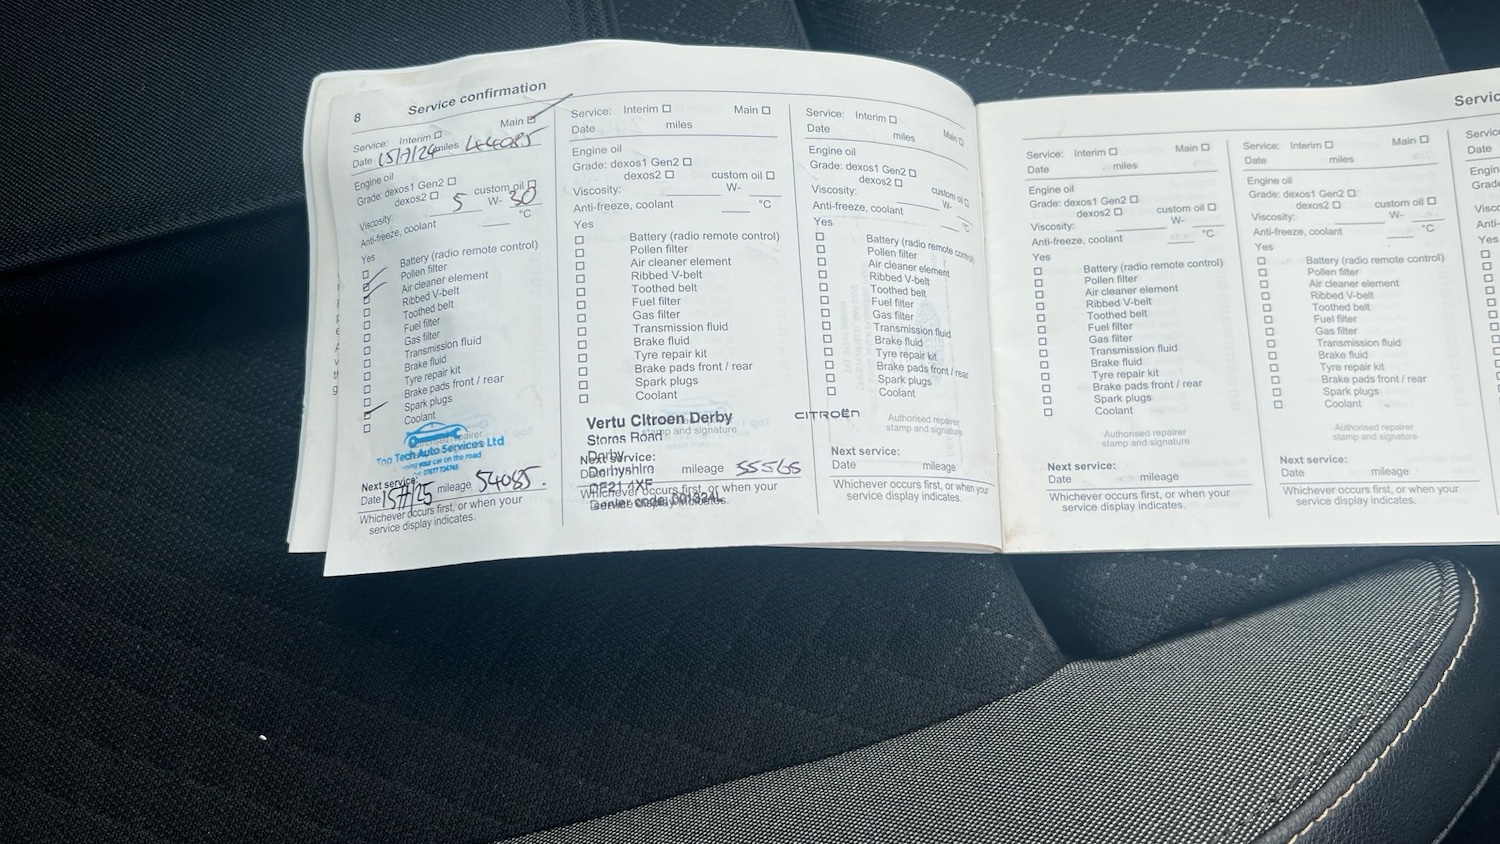 8 Service confirmation
Service: Interim Main
Date 15/7/24 miles 44085
Engine oil
Grade: dexos1 Gen2
dexos2 custom oil
Viscosity: 5 W- 30
Anti-freeze, coolant °C
Yes
Battery (radio remote control)
Pollen filter
Air cleaner element
Ribbed V-belt
Toothed belt
Fuel filter
Gas filter
Transmission fluid
Brake fluid
Tyre repair kit
Brake pads front / rear
Spark plugs
Coolant
Authorised repairer
Top Tech Auto Services Ltd
your car on the road
Next service:
Date 15/7/25 mileage 54085.
Whichever occurs first, or when your
service display indicates.
Service: Interim Main
Date miles
Engine oil
Grade: dexos1 Gen2
dexos2 custom oil
Viscosity: W-
Anti-freeze, coolant °C
Yes
Battery (radio remote control)
Pollen filter
Air cleaner element
Ribbed V-belt
Toothed belt
Fuel filter
Gas filter
Transmission fluid
Brake fluid
Tyre repair kit
Brake pads front / rear
Spark plugs
Coolant
Vertu Citroen Derby
CITROËN
Stores Road
stamp and signature
Derby
Next service:
Derbyshire
mileage 55565
DE21 4XF
Whichever occurs first, or when your
Dealer code:
service display indicates.
Service: Interim Main
Date miles
Engine oil
Grade: dexos1 Gen2
dexos2 custom oil
Viscosity: W-
Anti-freeze, coolant °C
Yes
Battery (radio remote control)
Pollen filter
Air cleaner element
Ribbed V-belt
Toothed belt
Fuel filter
Gas filter
Transmission fluid
Brake fluid
Tyre repair kit
Brake pads front / rear
Spark plugs
Coolant
Authorised repairer
stamp and signature
Next service:
Date mileage
Whichever occurs first, or when your
service display indicates.
Servic
Service: Interim Main
Date miles
Engine oil
Grade: dexos1 Gen2
dexos2 custom oil
Viscosity: W-
Anti-freeze, coolant °C
Yes
Battery (radio remote control)
Pollen filter
Air cleaner element
Ribbed V-belt
Toothed belt
Fuel filter
Gas filter
Transmission fluid
Brake fluid
Tyre repair kit
Brake pads front / rear
Spark plugs
Coolant
Authorised repairer
stamp and signature
Next service:
Date mileage
Whichever occurs first, or when your
service display indicates.
Service: Interim Main
Date miles
Engine oil
Grade: dexos1 Gen2
dexos2 custom oil
Viscosity: W-
Anti-freeze, coolant °C
Yes
Battery (radio remote control)
Pollen filter
Air cleaner element
Ribbed V-belt
Toothed belt
Fuel filter
Gas filter
Transmission fluid
Brake fluid
Tyre repair kit
Brake pads front / rear
Spark plugs
Coolant
Authorised repairer
stamp and signature
Next service:
Date mileage
Whichever occurs first, or when your
service display indicates.
Servic
Date
Engin
Grade
Visco
Anti-
Yes